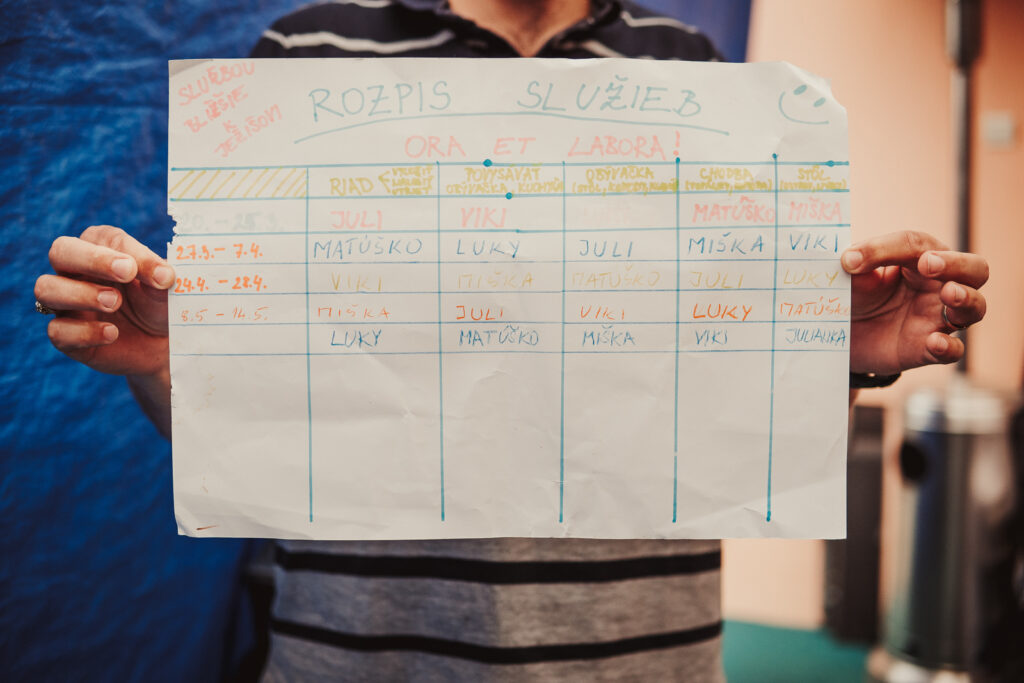 SLUŽBOU
BLIŽŠIE
K
JEŽIŠOVI
ROZPIS SLUŽIEB
ORA ET LABORA!
RIAD POVYSÁVAŤ OBÝVAČKA CHODBA STÔL
OBÝVAČKA, KUCHYŇA
20. - 25.3. JULI VIKI MATÚŠKO MIŠKA
27.3. - 7.4. MATÚŠKO LUKY JULI MIŠKA VIKI
24.4. - 28.4. VIKI MIŠKA MATÚŠKO JULI LUKY
8.5. - 14.5. MIŠKA JULI VIKI LUKY MATÚŠKO
LUKY MATÚŠKO MIŠKA VIKI JULIANKA